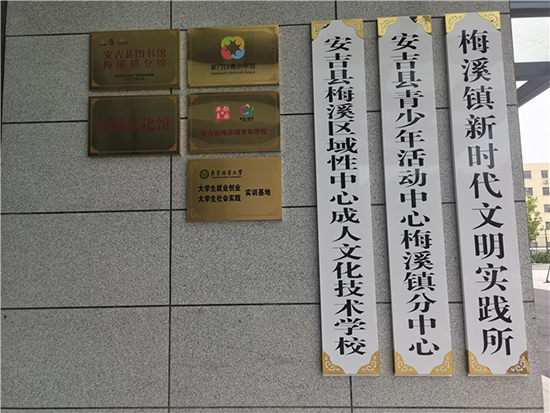 安吉县图书馆
梅溪镇分馆
家门口青少年宫
文化馆
安吉县梅溪镇老年学校
南京林业大学
大学生就业创业
大学生社会实践
实训基地
安吉县梅溪区域性中心成人文化技术学校
安吉县青少年活动中心梅溪镇分中心
梅溪镇新时代文明实践所